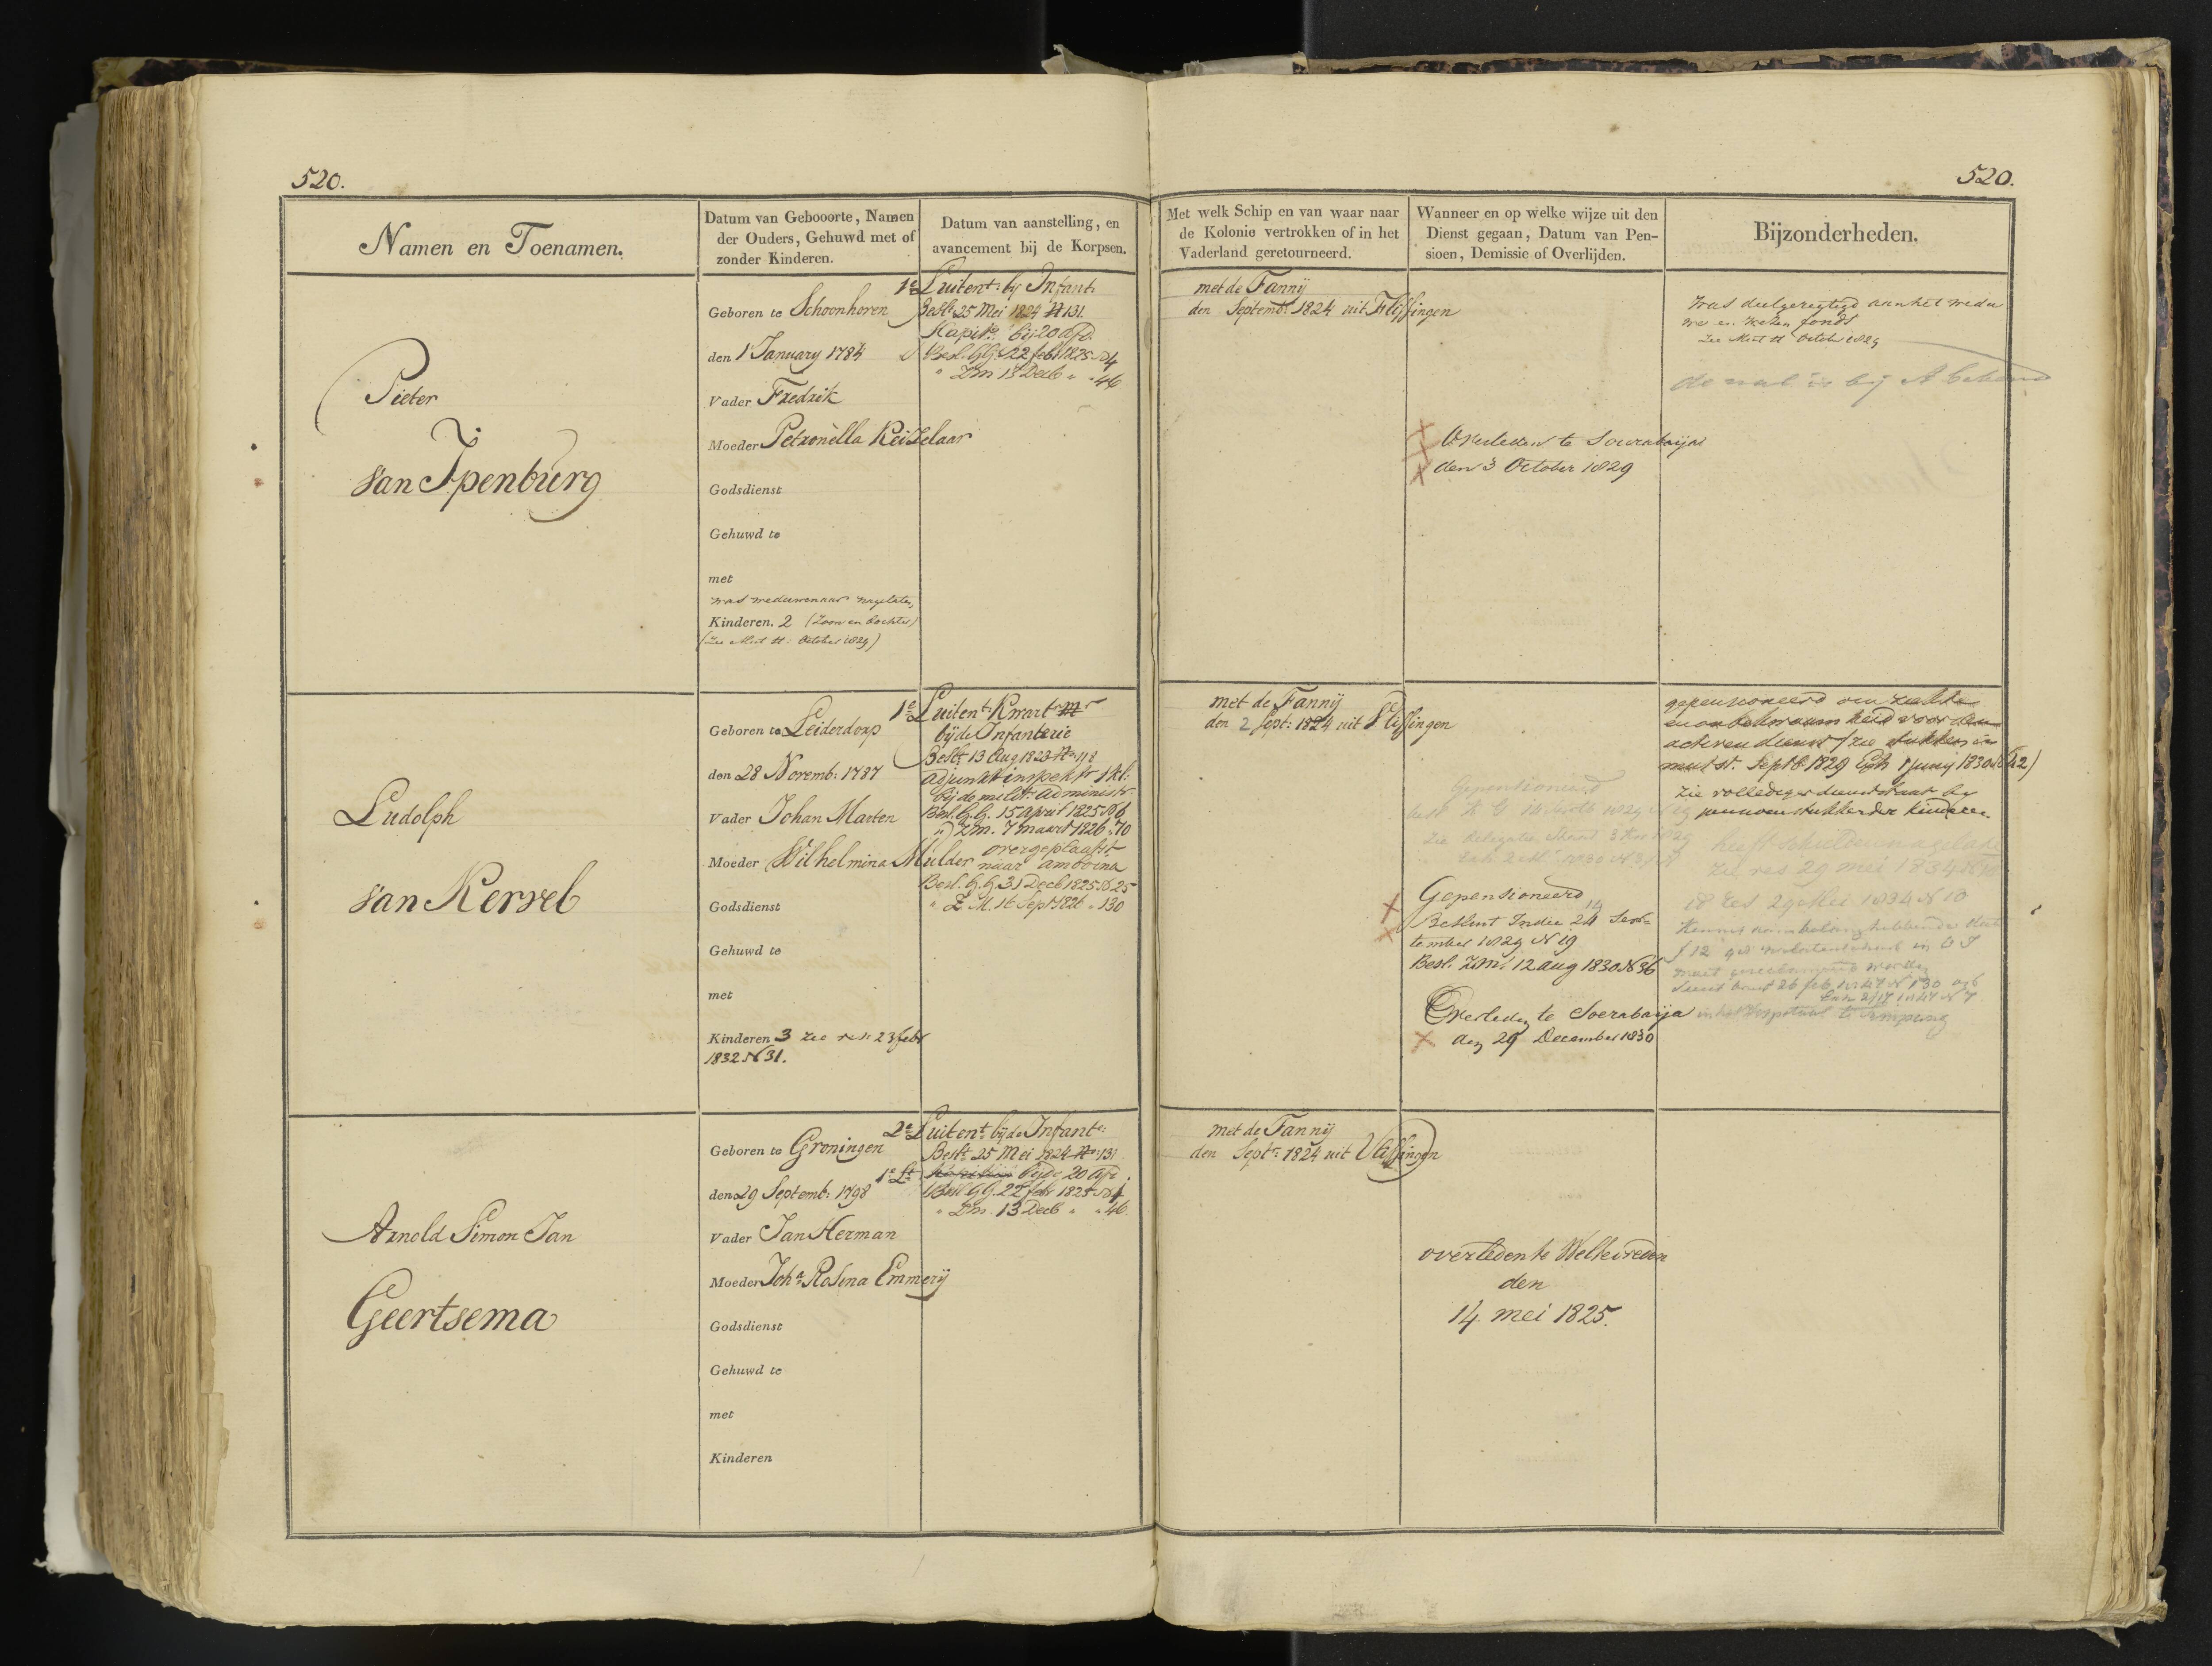 520.
520.
Namen en Toenamen.
Datum van Gebooorte, Namen
der Ouders, Gehuwd met of
zonder Kinderen.
Datum van aanstelling, en
avancement bij de Korpsen.
Met welk Schip en van waar naar
de Kolonie vertrokken of in het
Vaderland geretourneerd.
Wanneer en op welke wijze uit den
Dienst gegaan, Datum van Pen-
sioen, Demissie of Overlijden.
Bijzonderheden.
Pieter
van Ipenburg
Geboren te Schoonhoven
den 1 January 1784
Vader Fredrik
Moeder Petronella Keizelaar
Godsdienst
Gehuwd te
met
was weduwenaar nagelaten
Kinderen. 2 (Zoon en dochter)
(Zie Mut st: October 1829)
1e Luitent: by Infant:
Beslt 25 Mei 1824 No 131.
Kapitn: bij 20 afd.
Besl. GG. 22 feb 1825 No 4
" ZM 13 Decb " " 46
met de Fannij
den Septembr 1824 uit Vlissingen
Overleden te Sourabaija
den 3 October 1829
Was deelgeregtigd aan het wedu
we en Wezen fonds
Zie Mut st October 1829
de nal is bij A bekend
Ludolph
van Kervel
Geboren te Leiderdorp
den 28 Novemb: 1787
Vader Johan Marten
Moeder Wilhelmina Mulder
Godsdienst
Gehuwd te
met
Kinderen 3 zie res: 23 febr
1832 N 31.
1e Luitent: Kwart Mr
bij de Infanterie
Beslt 13 Aug 1823 No 98
adjunkt inspektr 1 kl:
bij de milit: administr
Besl. G.G. 15 april 1825 No 6
" ZM. 7 maart 1826 " 70
overgeplaatst
naar amboina
Besl. G.G. 31 Decb 1825 No 25
" Z.M. 16 Sept 1826 " 130
met de Fannij
den 2 Sept: 1824 uit Vlissingen
Gepensioneerd
Gepensioneerd
14
Besluit Indie 24 Sep-
tember 1829 N 19
Besl. Z.M. 12 aug 1830 N 96
Overleden te Soerabaija in het Hospitaal te Simpang
den 29 December 1830
gepensioneerd om ziekte
en onbekwaamheid voor den
activen dienst (zie stukken in
mut st. Septb 1829 Exh 1 Junij 1830 N 42)
Zie volledige dienststaat by
pensioenstukken der kinderen
heeft schulden nagelaten
zie res 29 mei 1834 N 10
Res 29 Mei 1834 N 10
Arnold Simon Jan
Geertsema
Geboren te Groningen
den 29 Septemb: 1798
Vader Jan Herman
Moeder Joha Rosina Emmerij
Godsdienst
Gehuwd te
met
Kinderen
2e Luitent bij de Infante:
Beslt 25 Mei 1824 No 131
1e Lt Kapitein bij de 20 afd.
Besl GG. 22 febr 1825 No 4
" ZM. 13 Decb " " 46.
met de Fannij
den Septr 1824 uit Vlissingen
overleden te Weltevreden
den
14 mei 1825.